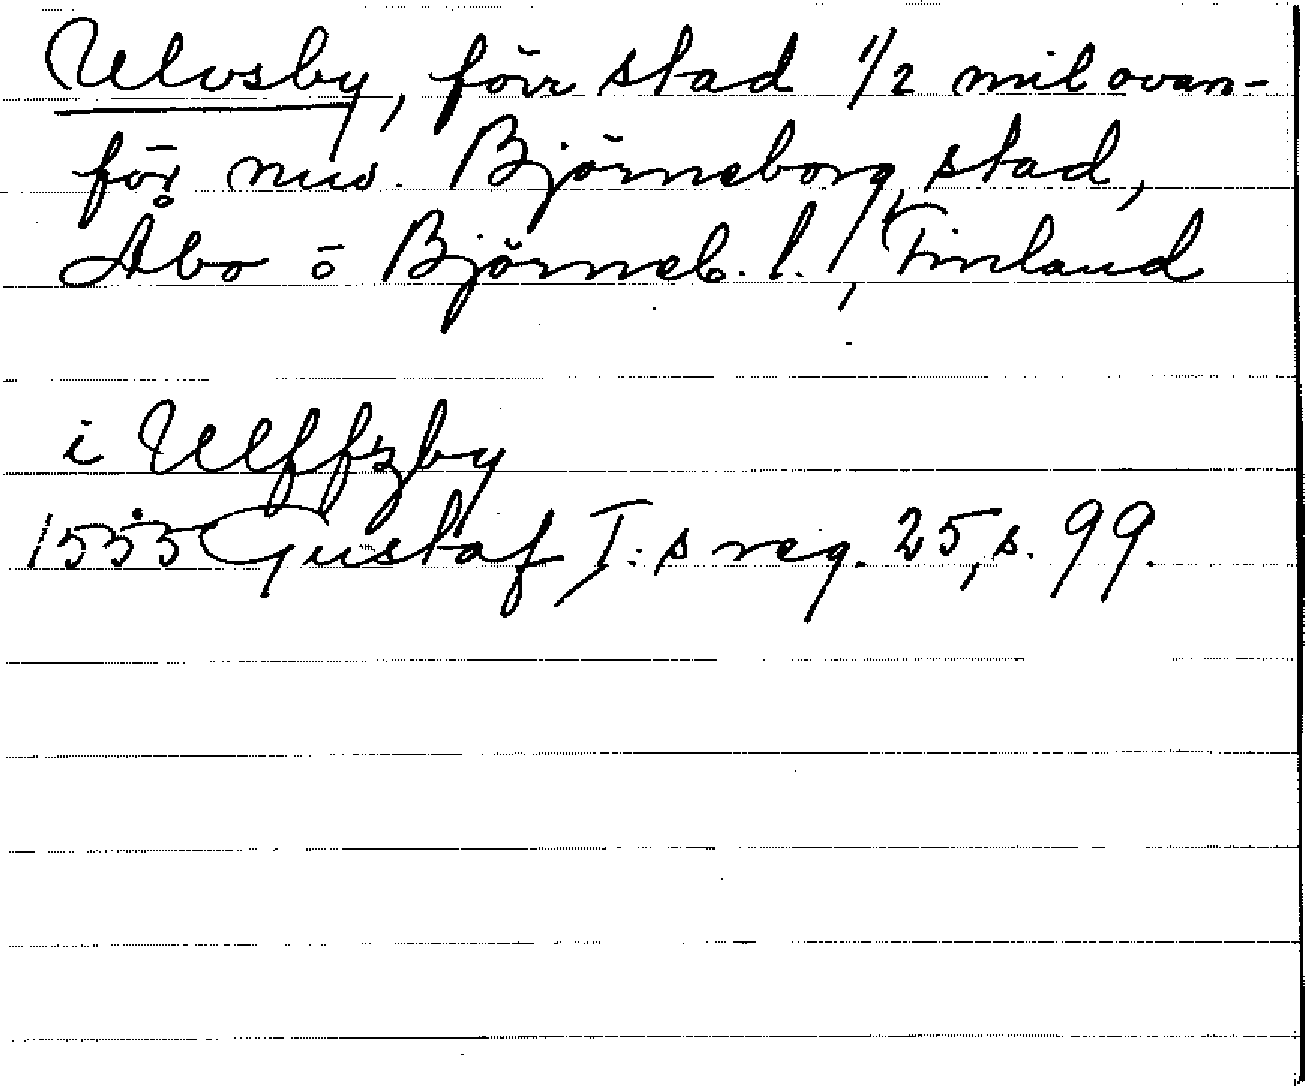 Ulvsby, förr stad 1/2 mil ovan-
för nuv. Björneborg, stad,
Åbo o Björneb. l., Finland
i Ulffzby
1555 Gustaf I:s reg. 25, s. 99.